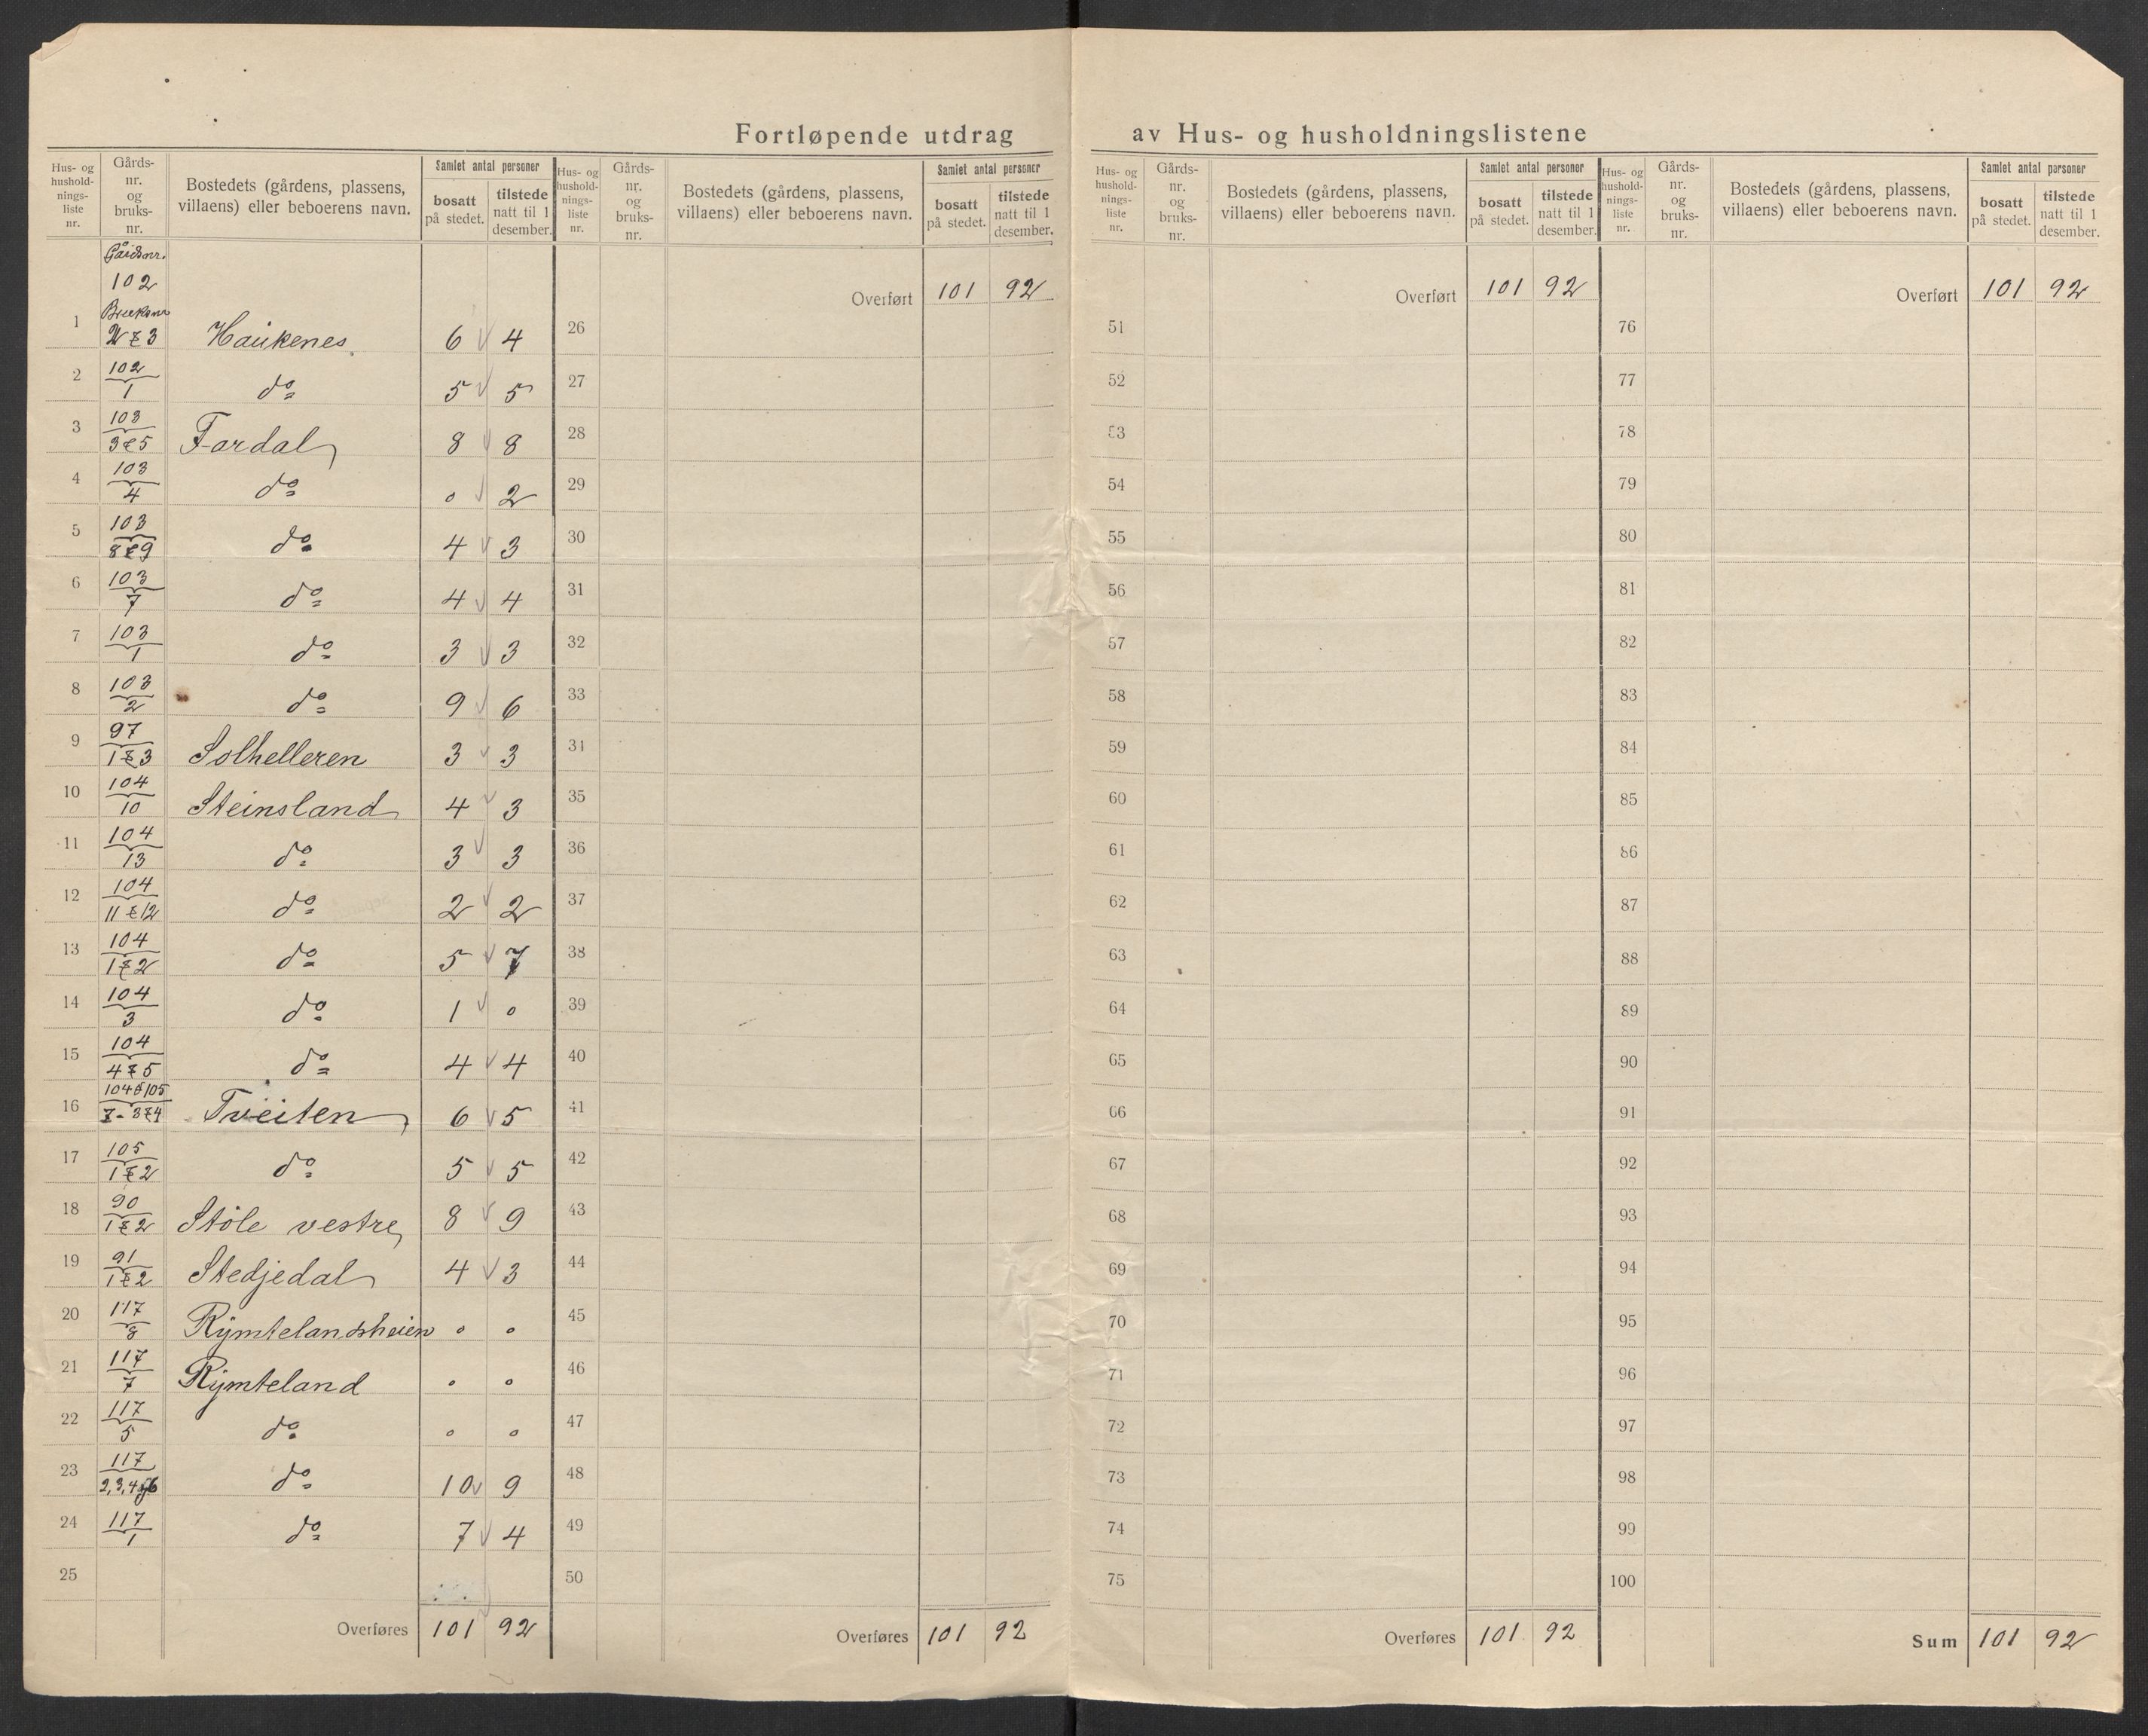 Fortløpende utdrag av Hus- og husholdningslistene
Hus- og husholdnings-liste nr. | Gårds-nr. og bruks-nr. | Bostedets (gårdens, plassens, villaens) eller beboerens navn. | Samlet antal personer | bosatt på stedet. | tilstede natt til 1 desember.
Gårdsnr.
102
Bruksnr
1 | 2 & 3 | Haukenes | 6 | 4
2 | 102/1 | do | 5 | 5
3 | 103/3&5 | Fardal | 8 | 8
4 | 103/4 | do | 0 | 2
5 | 103/8&9 | do | 4 | 3
6 | 103/7 | do | 4 | 4
7 | 103/1 | do | 3 | 3
8 | 103/2 | do | 9 | 6
9 | 97/1&3 | Solhelleren | 3 | 3
10 | 104/10 | Steinsland | 4 | 3
11 | 104/13 | do | 3 | 3
12 | 104/11&12 | do | 2 | 2
13 | 104/1&2 | do | 5 | 7
14 | 104/3 | do | 1 | 0
15 | 104/4&5 | do | 4 | 4
16 | 104&105/7-3&4 | Tveiten | 6 | 5
17 | 105/1&2 | do | 5 | 5
18 | 90/1&2 | Støle vestre | 8 | 9
19 | 91/1&2 | Stedjedal | 4 | 3
20 | 117/8 | Rymtelandsheien | 0 | 0
21 | 117/7 | Rymteland | 0 | 0
22 | 117/5 | do | 0 | 0
23 | 117/2,3,4 | do | 10 | 9
24 | 117/1 | do | 7 | 4
25
Overføres | 101 | 92
Hus- og husholdnings-liste nr. | Gårds-nr. og bruks-nr. | Bostedets (gårdens, plassens, villaens) eller beboerens navn. | Samlet antal personer | bosatt på stedet. | tilstede natt til 1 desember.
Overført | 101 | 92
26
27
28
29
30
31
32
33
34
35
36
37
38
39
40
41
42
43
44
45
46
47
48
49
50
Overføres | 101 | 92
Hus- og husholdnings-liste nr. | Gårds-nr. og bruks-nr. | Bostedets (gårdens, plassens, villaens) eller beboerens navn. | Samlet antal personer | bosatt på stedet. | tilstede natt til 1 desember.
Overført | 101 | 92
51
52
53
54
55
56
57
58
59
60
61
62
63
64
65
66
67
68
69
70
71
72
73
74
75
Overføres | 101 | 92
Hus- og husholdnings-liste nr. | Gårds-nr. og bruks-nr. | Bostedets (gårdens, plassens, villaens) eller beboerens navn. | Samlet antal personer | bosatt på stedet. | tilstede natt til 1 desember.
Overført | 101 | 92
76
77
78
79
80
81
82
83
84
85
86
87
88
89
90
91
92
93
94
95
96
97
98
99
100
Sum | 101 | 92